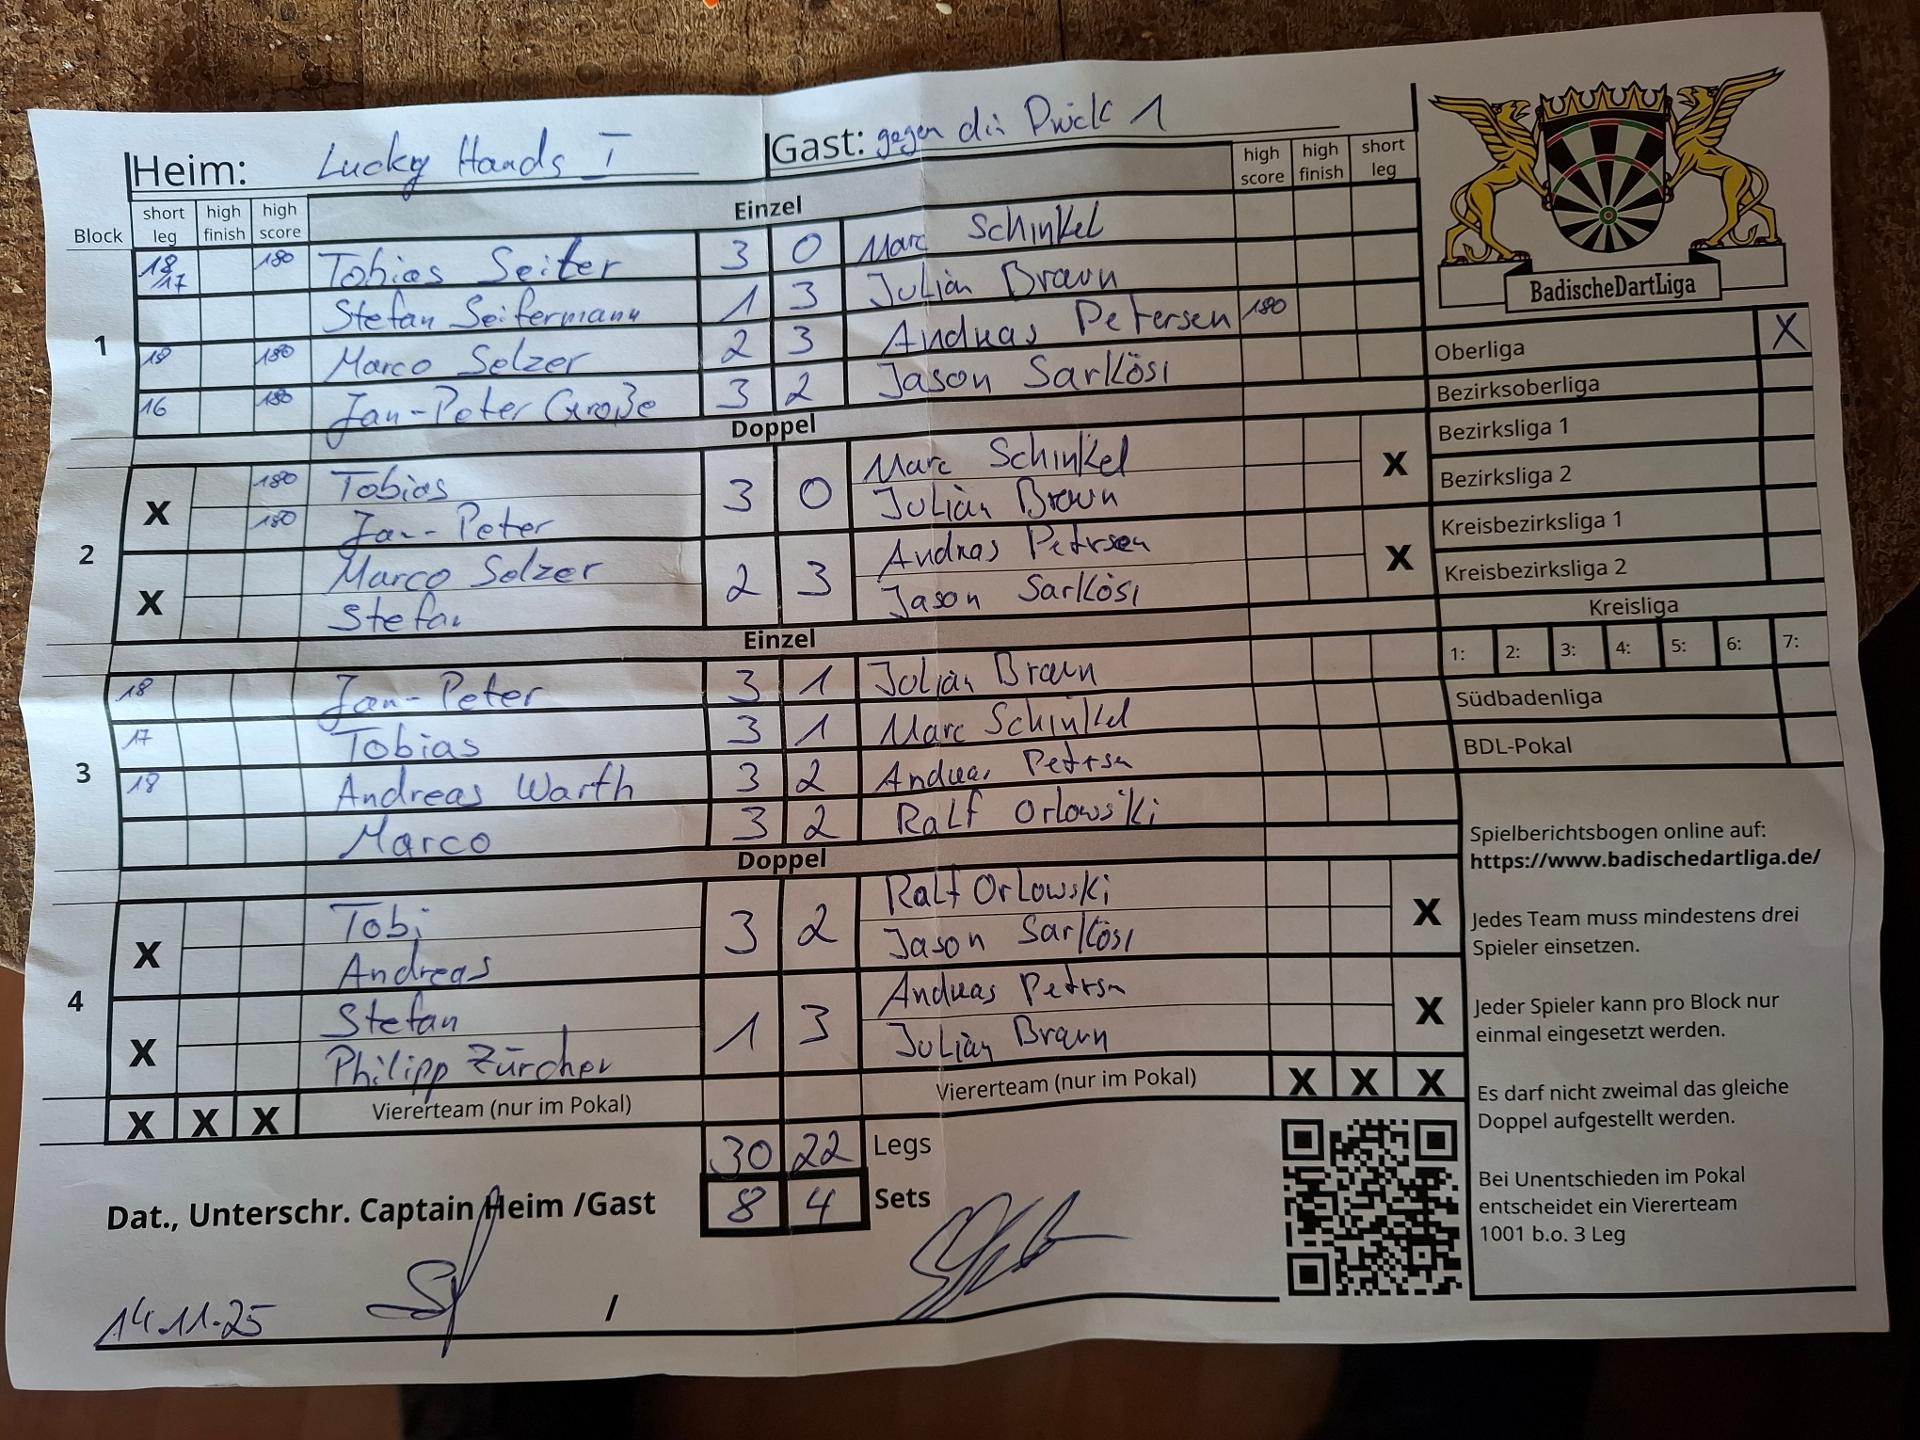 Heim: Lucky Hands I Gast: gegen die Drück 1
high score high finish short leg
Block short leg high finish high score Einzel
1
18/17 180 Tobias Seiter 3 0 Marc Schinkel
Stefan Seifermann 1 3 Julian Braun
18 180 Marco Selzer 2 3 Andreas Petersen 180
16 180 Jan-Peter Große 3 2 Jason Sarkösi
Doppel
2
X 180 Tobias 3 0 Marc Schinkel X
180 Jan-Peter Julian Braun
X Marco Selzer 2 3 Andreas Petersen X
Stefan Jason Sarkösi
Einzel
3
18 Jan-Peter 3 1 Julian Braun
17 Tobias 3 1 Marc Schinkel
18 Andreas Warth 3 2 Andreas Petersen
Marco 3 2 Ralf Orlowski
Doppel
4
X Tobi 3 2 Ralf Orlowski X
Andreas Jason Sarkösi
X Stefan 1 3 Andreas Petersen X
Philipp Zürcher Julian Braun
X X X Viererteam (nur im Pokal) Viererteam (nur im Pokal) X X X
30 22 Legs
Dat., Unterschr. Captain Heim /Gast 8 4 Sets
14.11.25 /
BadischeDartLiga
Oberliga X
Bezirksoberliga
Bezirksliga 1
Bezirksliga 2
Kreisbezirksliga 1
Kreisbezirksliga 2
Kreisliga
1: 2: 3: 4: 5: 6: 7:
Südbadenliga
BDL-Pokal
Spielberichtsbogen online auf:
https://www.badischedartliga.de/
Jedes Team muss mindestens drei
Spieler einsetzen.
Jeder Spieler kann pro Block nur
einmal eingesetzt werden.
Es darf nicht zweimal das gleiche
Doppel aufgestellt werden.
Bei Unentschieden im Pokal
entscheidet ein Viererteam
1001 b.o. 3 Leg